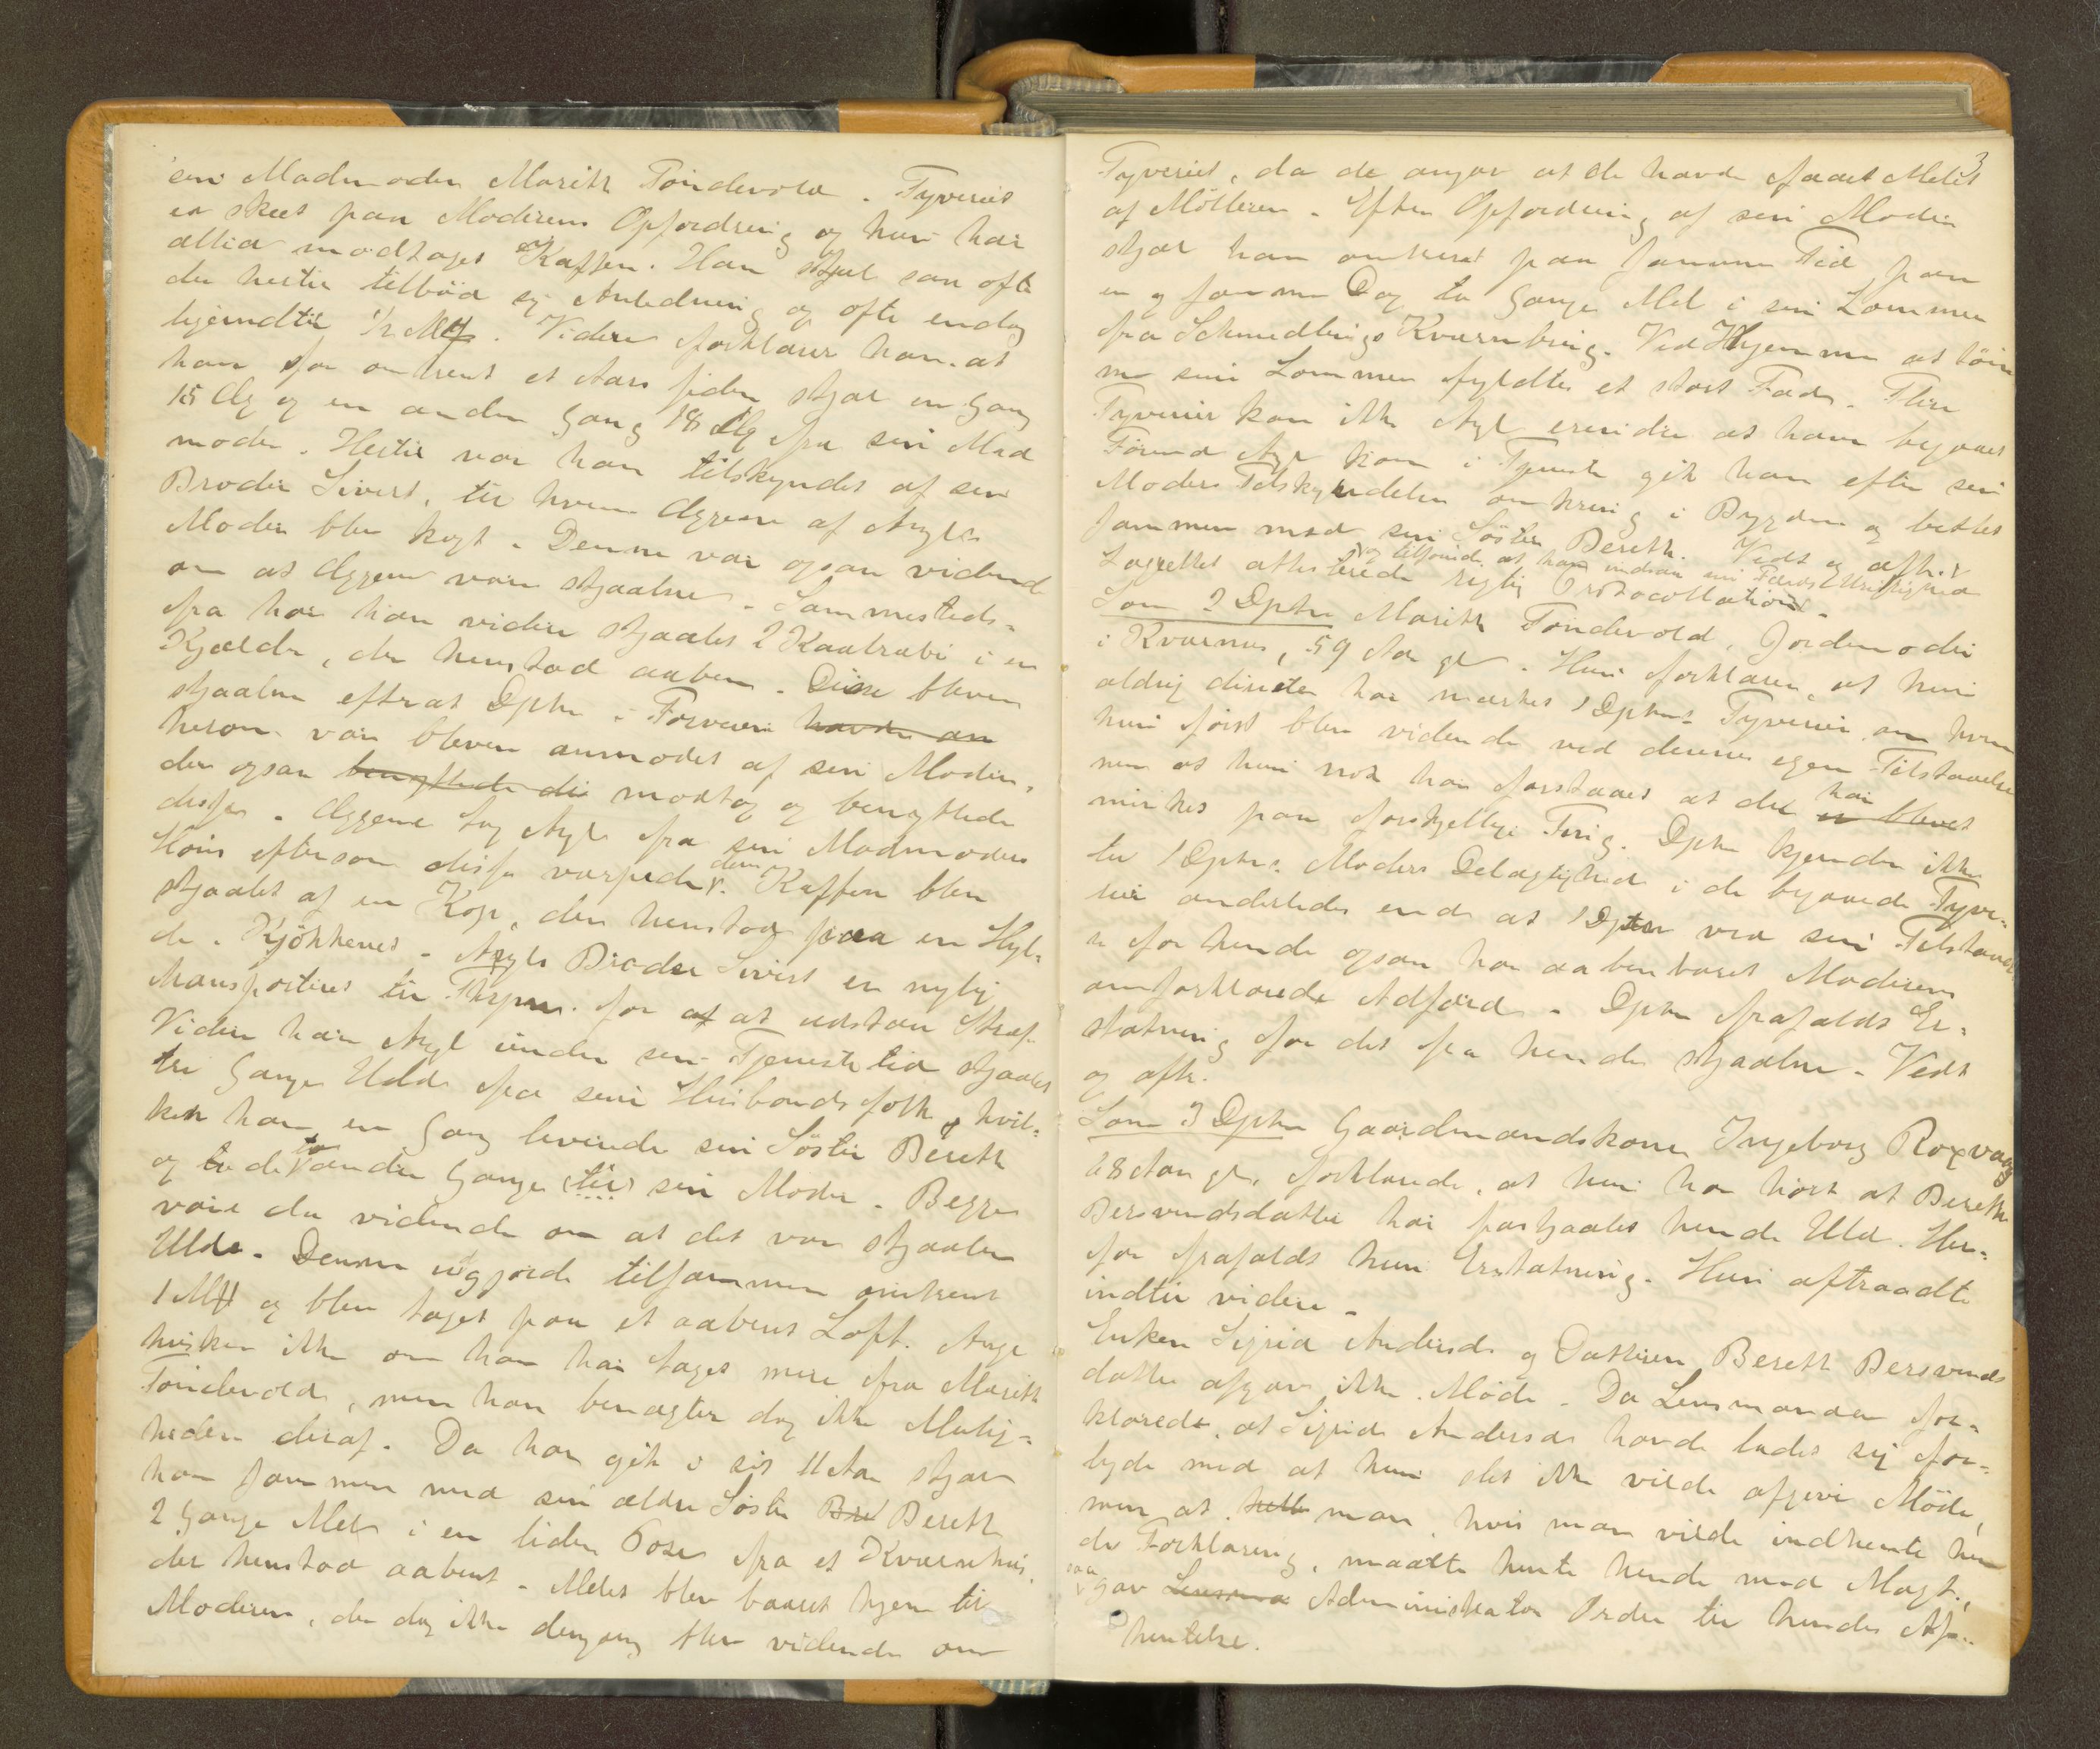 sin Madmoder Marith Töndevold. Tyveriet
er skeet paa Moderens Opfordring og hun har
altid modtaget Kaffen. Han stjal saa ofte
der hertil tilböd sig Anledning og ofte endog
1/2 M. Videre forklarer han at
han for omtrent et Aars siden stjal en Gang
15 Æg og en anden Gang 18 Æg fra sin Mad
moder. Hertil var han tilskyndet af sin
Broder Sivert, til hvem Æggene af Angels
Moder blev kogt. Denne var ogsaa vidende
om at Æggene vare stjaalne. Sammesteds-
fra har han videre stjaalet 2 Kaalrabi i en
Kjelder, der henstod aaben. Disse bleven
stjaalne efterat Dptn i Forveien havde an
herom var bleven anmodet af sin Moder,
der ogsaa benyttede die modtog og benyttede
disse. Æggene tog Angel fra sin Madmoders
Höns eftersom disse varpede dem. Kaffen blev
stjaalet af en Kop, der henstod paa en Hyl-
de i Kjökkenet. Angels Broder Sivert er nylig
transporteret til Thjem for at at udstaa Straf.
Videre har Angel under sin Tjenestetid stjaalet
tre Gange Uld fra sine Husbondsfolk, hvil-
ken han en Gang leverede sin Söster Bereth
og de to andre Gange til sin Moder. Begge
vare da vidende om at det var stjaalen
Uld. Denne udgjorde tilsammen omtrent
1 M og blev taget paa et aabent Loft. Angel
husker ikke om han har taget mere fra Marith
Töndevold, men han benægter dog ikke Mulig-
heden deraf. Da han gik i sit 11te Aar stjal
han sammen med sin ældre Söster Bre Bereth
2 Gange Mel i en liden Pose fra et Kværnhus,
der henstod aabent. Melet blev baaret hjem til
Moderen, der dog ikke dengang blev vidende om
3
Tyveriet, da de angav at de havde faaet Melet
af Mölleren. Efter Opfordring af sin Moder
stjal han omtrent paa samme Tid paa
en og samme Dag to Gange Mel i sin Lommer
fra Schmedlings Kværnbrug. Ved Hjemme at töm
me sine Lommer fyldtes et stort Fad. Flere
Tyverier kan ikke Angel erindre at have begaaet
Förend Angel kom i Tjeneste gik han efter sin
Moders Tilskyndelse omkring i Bygden og betlet
sammen med sin Söster Bereth. Vedt og aftr.
og tilföiede, at han indsaa sin Færds Urigtighed
Lagrettet attesterede rigtig Protocollation.
Som 2 Dptn Marith Töndevold, Jordemoder
i Kværnes, 59 Aar gl. Hun forklarer, at hun
aldrig directe har mærket 1 Dptns Tyverier, om hvem
hun först blev vidende ved dennes egen Tilstaaelse
men at hun nok har forstaaet at det har er blevet
minket paa forskjellige Ting. Dptn kjender ikke
til 1 Dptns Moders Delagtighed i de begaaede Tyve-
rier anderledes end at 1 Dptn ved sin Tilstaael
se for hende ogsaa har aabenbaret Moderens
omforklarede Adfærd. Dptn frafaldt Er-
statning for det fra hende stjaalne. Vedt
og aftr.
Som 3 Dptn Gaardmandskone Ingeborg Roxvaag
28 Aar gl, forklarede, at hun har hört at Bereth
Bersvendsdatter har frastjaalet hende Uld. Her-
for frafaldt hun Erstatning. Hun aftraadte
indtil videre.
Enken Sigrid Andersd. og Datteren Bereth Bersvends
datter afgav ikke Möde. Da Lensmanden for-
klarede, at Sigrid Andersd. havde ladet sig for-
lyde med at hun slet ikke vilde afgive Möde,
men at helle man, hvis man vilde indhente hen
des Forklaring, maatte hente hende med Magt,
saa gav Lensma Administrator Ordre til hendes Af-
hentelse.